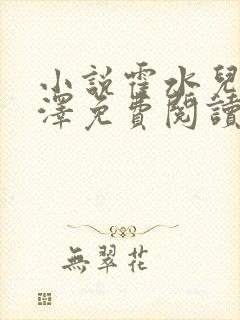 小說霍水兒
澤免費閱讀
無翠花